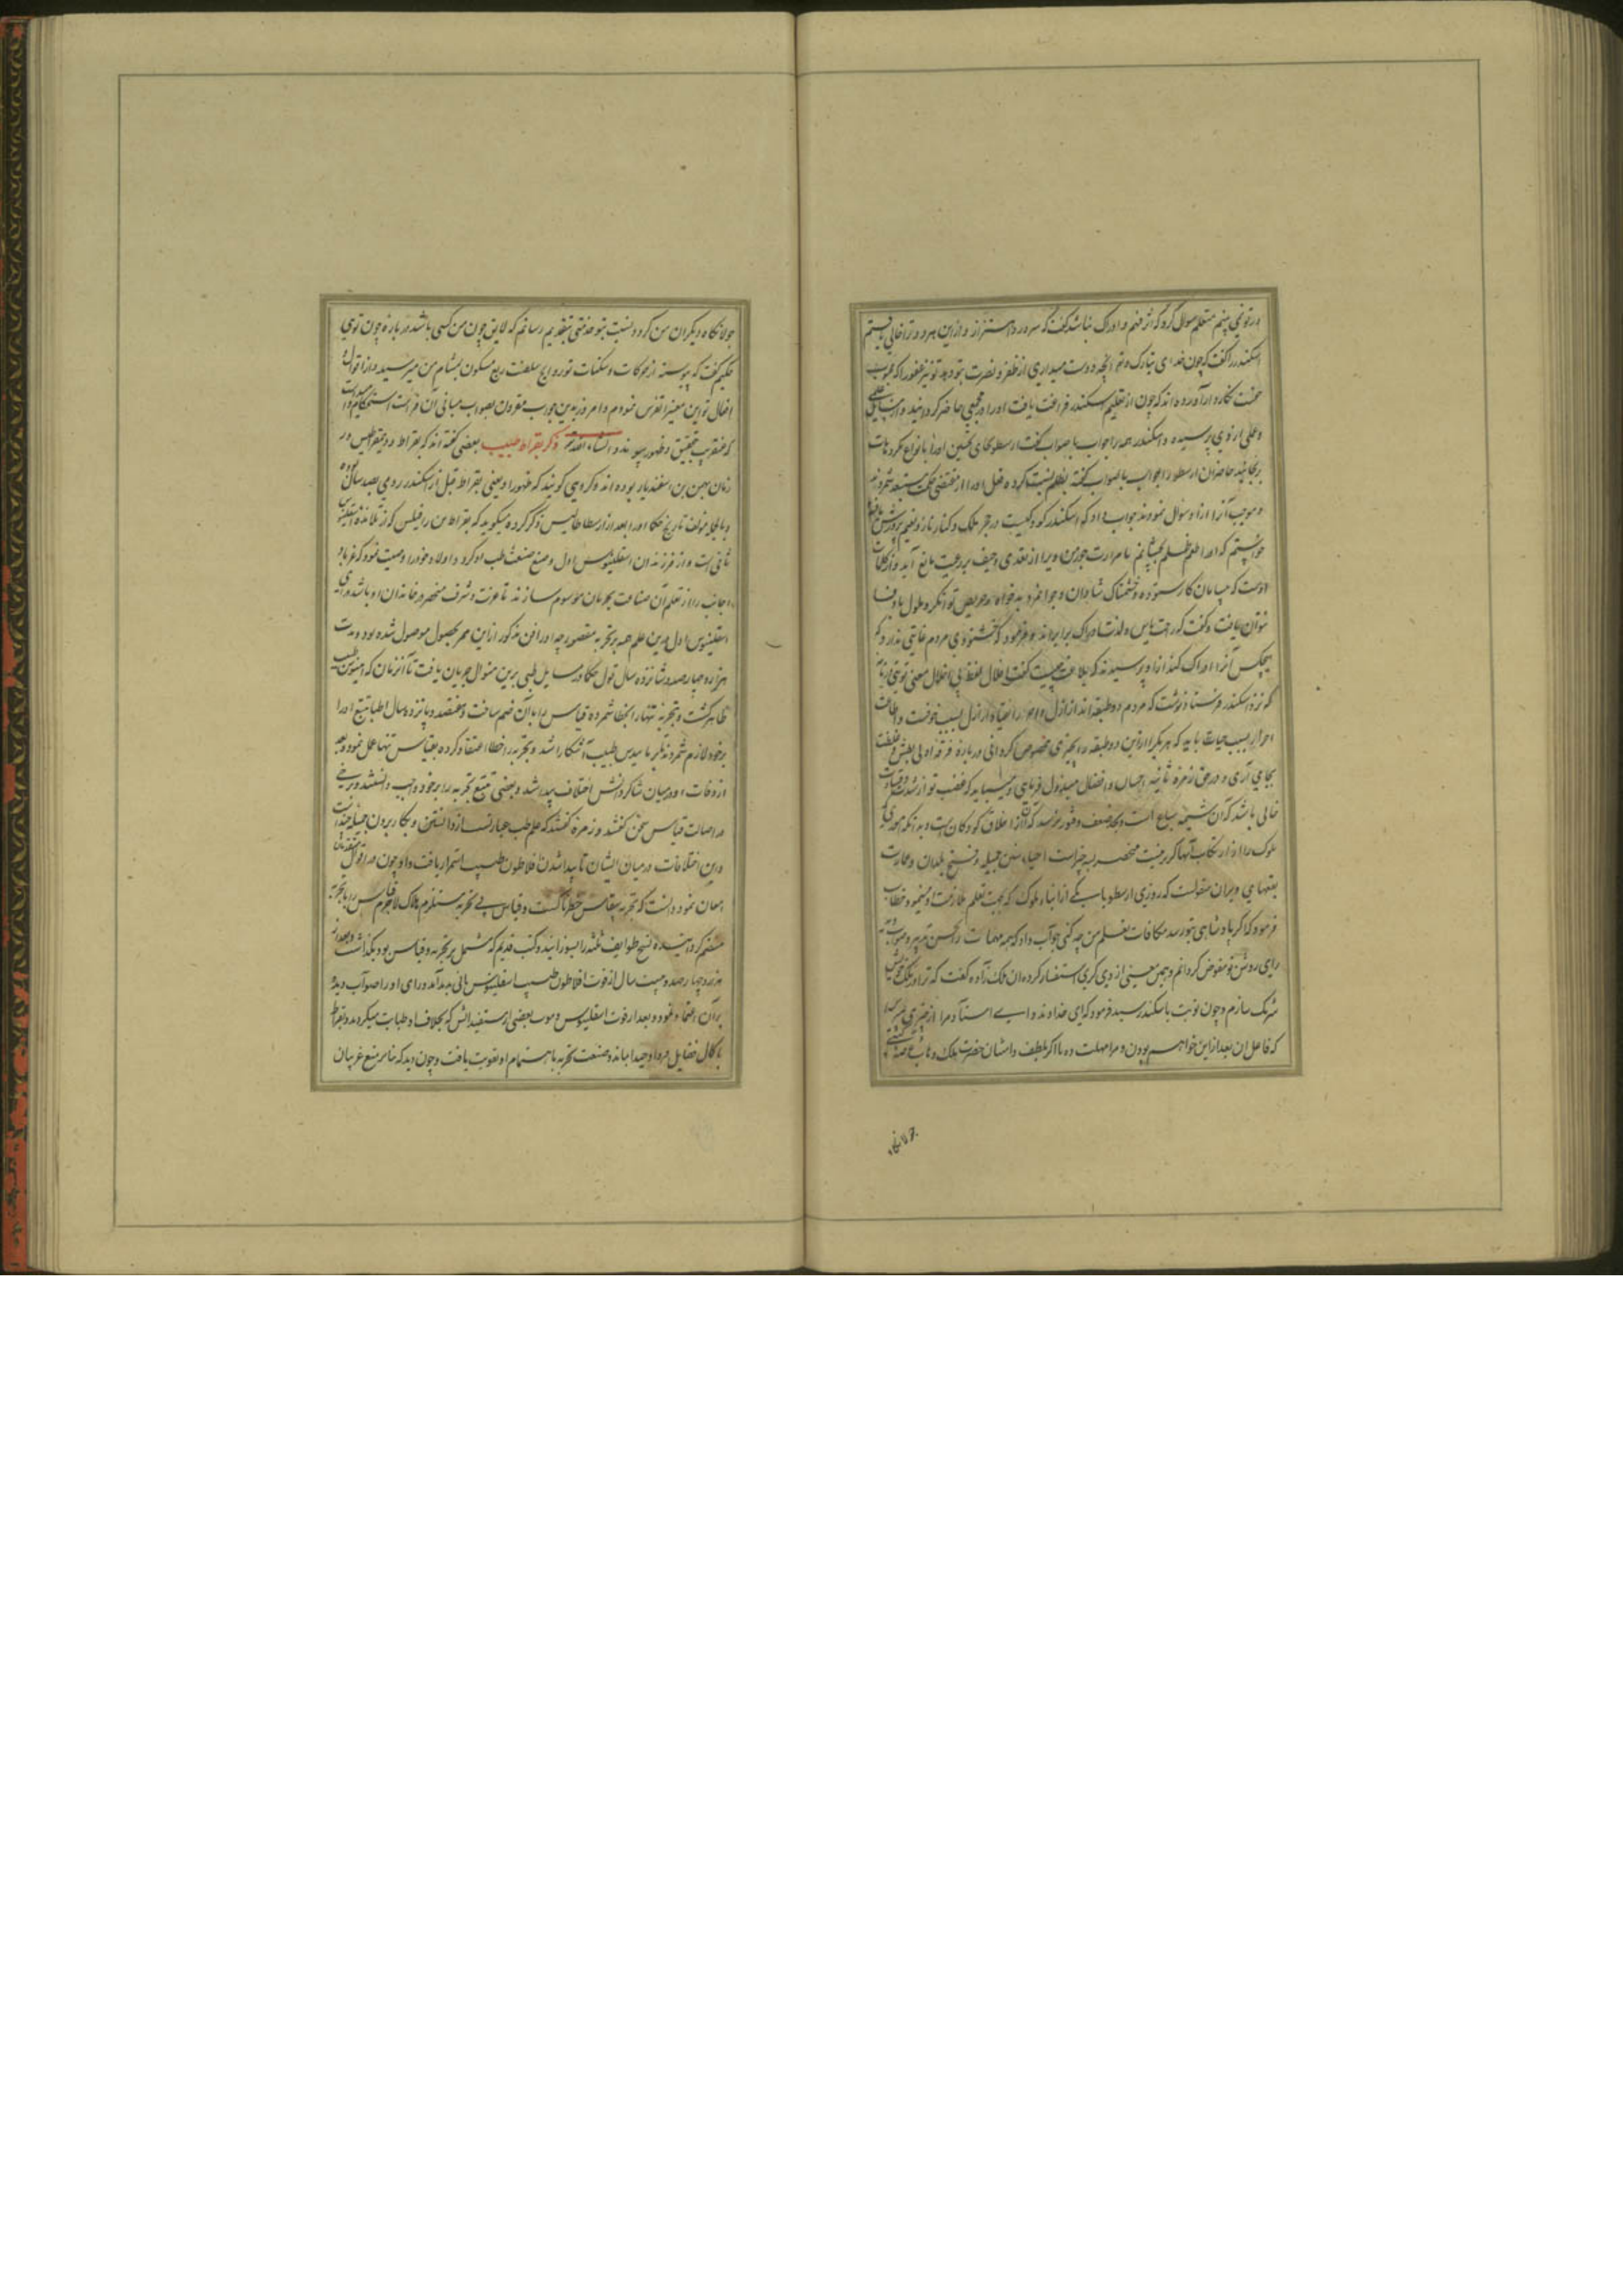 در تو نمی بینم متعلم سوال کرد که اثر فهم و ادراک بنا شد گفت که سرور و اهتزاز و ازین هر دو ترا خالی یافتم
اسکندر را گفت که چون خدای تبارک و تعالی آنچه دوست میداری از ظفر و نصرت بتو دهد تو نیز عفو را که محبوب
اوست بجای آر آورده اند که چون از تعلیم اسکندر فراغت یافت او را در مجمعی حاضر گردانید و از مسایل علمی
و عملی از وی پرسید و اسکندر همه را جواب باصواب گفت ارسطو بجای تحسین او را بانواع مکروهات
برنجانید حاضران ارسطو را بظلم نسبت کرده فعل او را از مقتضی حکمت مستبعد شمردند
و موجب آنرا ازو سوال نمودند جواب داد که اسکندر کودکیست در حجر ملک و کنار ناز و نعیم پرورش یافته
خواستم که او را طعم ظلم بچشانم تا مرارت جور من ویرا از تعدی و حیف بر رعیت مانع آید و از کلمات
اوست که
نتوان یافت و گفت که راحت یاس و لذت ادراک برابر اند و فرمود که خشنودی مردم غایتی ندارد که
هیچکس آنرا ادراک کند از او پرسیدند که بلاغت چیست گفت اقلال لفظ بی اخلال معنی
که نزد اسکندر فرستاد نوشت که مردم دو طبقه اند اراذل و احرار انقیاد اراذل بسبب خوفست و اطاعت
احرار بسبب حیات باید که هر یک را ازین دو طبقه بچیزی مخصوص گردانی در باره فرقه اولی بطش و غلظت
بجای آری و در حق زمره ثانیه احسان و افضال مبذول فرمایی و میباید که غضب تو از شدت و قساوت
خالی باشد که آن شیمه سباع است و بحد ضعف و فتور نرسد که آن از اخلاق کودکان است
ملوک را از ارتکاب آنها گزیر نیست منحصر بسه چیز است احیاء سنن جمیله و فتح بلدان و عمارت
بقعهای ویران منقولست که روزی ارسطو با یکی از ابناء ملوک که بجهت تعلم ملازمت او مینمود خطاب
فرمود که اگر پادشاهی بتو رسد مکافات تعلیم من چه کنی جواب داد که همه مهمات را بحسن تدبیر و صواب
رای روشن تو مفوض گردانم و همین معنی از دیگری استفسار کرد آن ملک زاده گفت که ترا در ملک خویش
شریک سازم و چون نوبت باسکندر رسید فرمود که ای خداوند و ای استاد مرا از چیزی مپرس
که فاعل آن بعد ازین خواهم بودن و مرا مهلت ده تا اگر بلطف و امتنان حضرت ملک وهاب عرصه گیتی
جولانگاه
جولانگاه دیگران من گردد نسبت بتو خدمتی بتقدیم رسانم که لایق چون من کسی باشد در باره چون تویی
حکیم گفت که پیوسته از حرکات و سکنات تو رواج سلطنت ربع مسکون بمشام من میرسید و از اقوال و
افعال تو این معنی را تفرس مینمودم و امروز بدین جواب مقرون بصواب مبانی آن فراست استحکام پذیرفت
که عنقریب بتحقیق و ظهور پیوندد انشاء الله ذکر بقراط طبیب بعضی گفته اند که بقراط و دیمقراطیس در
زمان بهمن بن اسفندیار بوده اند و گروهی گویند که ظهور او یعنی بقراط قبل از اسکندر رومی بصد سال بوده
و بالجمله مولف تاریخ حکما او را بعد از ارسطاطالیس ذکر کرده میگوید که بقراط بن راقلیس که از تلامذه اسقلینوس
ثانی است و از فرزندان اسقلینوس اول وضع صنعت طب او کرد و اولاد خود را وصیت نمود که غربا و
اجانب را از تعلم آن صناعت بحرمان موسوم سازند تا عزت و شرف منحصر در خاندان او باشد و رای
اسقلینوس اول درین علم همه بر تجربه مقصور چه او را فن مذکور ازین ممر بحصول موصول شده بود و مدت
هزار و چهارصد و شانزده سال قول حکما در مسایل طبی برین منوال جریان یافت تا آنزمان که مینوس طبیب
ظاهر گشت و تجربه تنها را خطا شمرده قیاس را با آن ضم ساخت و هفتصد و پانزده سال اطبا تتبع او را
بر خود لازم شمردند تا برمانیدس طبیب آشکارا شد و تجربه را خطا اعتقاد کرده بقیاس تنها عمل نمود و بعد
از وفات او در میان شاگردانش اختلاف پیدا شد و بعضی تتبع تجربه را بر خود واجب دانستند و برخی
در اصالت قیاس سخن گفتند و زمره گفتند که علم طب عبارتست از دانستن و بکار بردن حیله چند
و این اختلافات در میان ایشان تا پیدا شدن افلاطون طبیب استمرار یافت و او چون در اقوال متقدمان
امعان نمود دانست که تجربه بی قیاس خطرناکست و قیاس بی تجربه مستلزم هلاک لاجرم قیاس را با تجربه
منضم گردانیده نسخ طوایف ثلثه را بسوزانید و کتب قدیم که مشتمل بر تجربه و قیاس بود بگذاشت و بعد از
هزار و چهارصد و بیست سال از فوت افلاطون طبیب اسقلینوس ثانی پدید آمد و رای او را صواب دیده
بر آن اعتماد نمود و بعد از فوت اسقلینوس و موت بعضی از مستفیدانش که بخلاف او طبابت میکردند بقراط
با کمال فضایل فرید و وحید بماند و صنعت تجربه باهتمام او تقویت یافت و چون دید که بنا بر منع غریبان